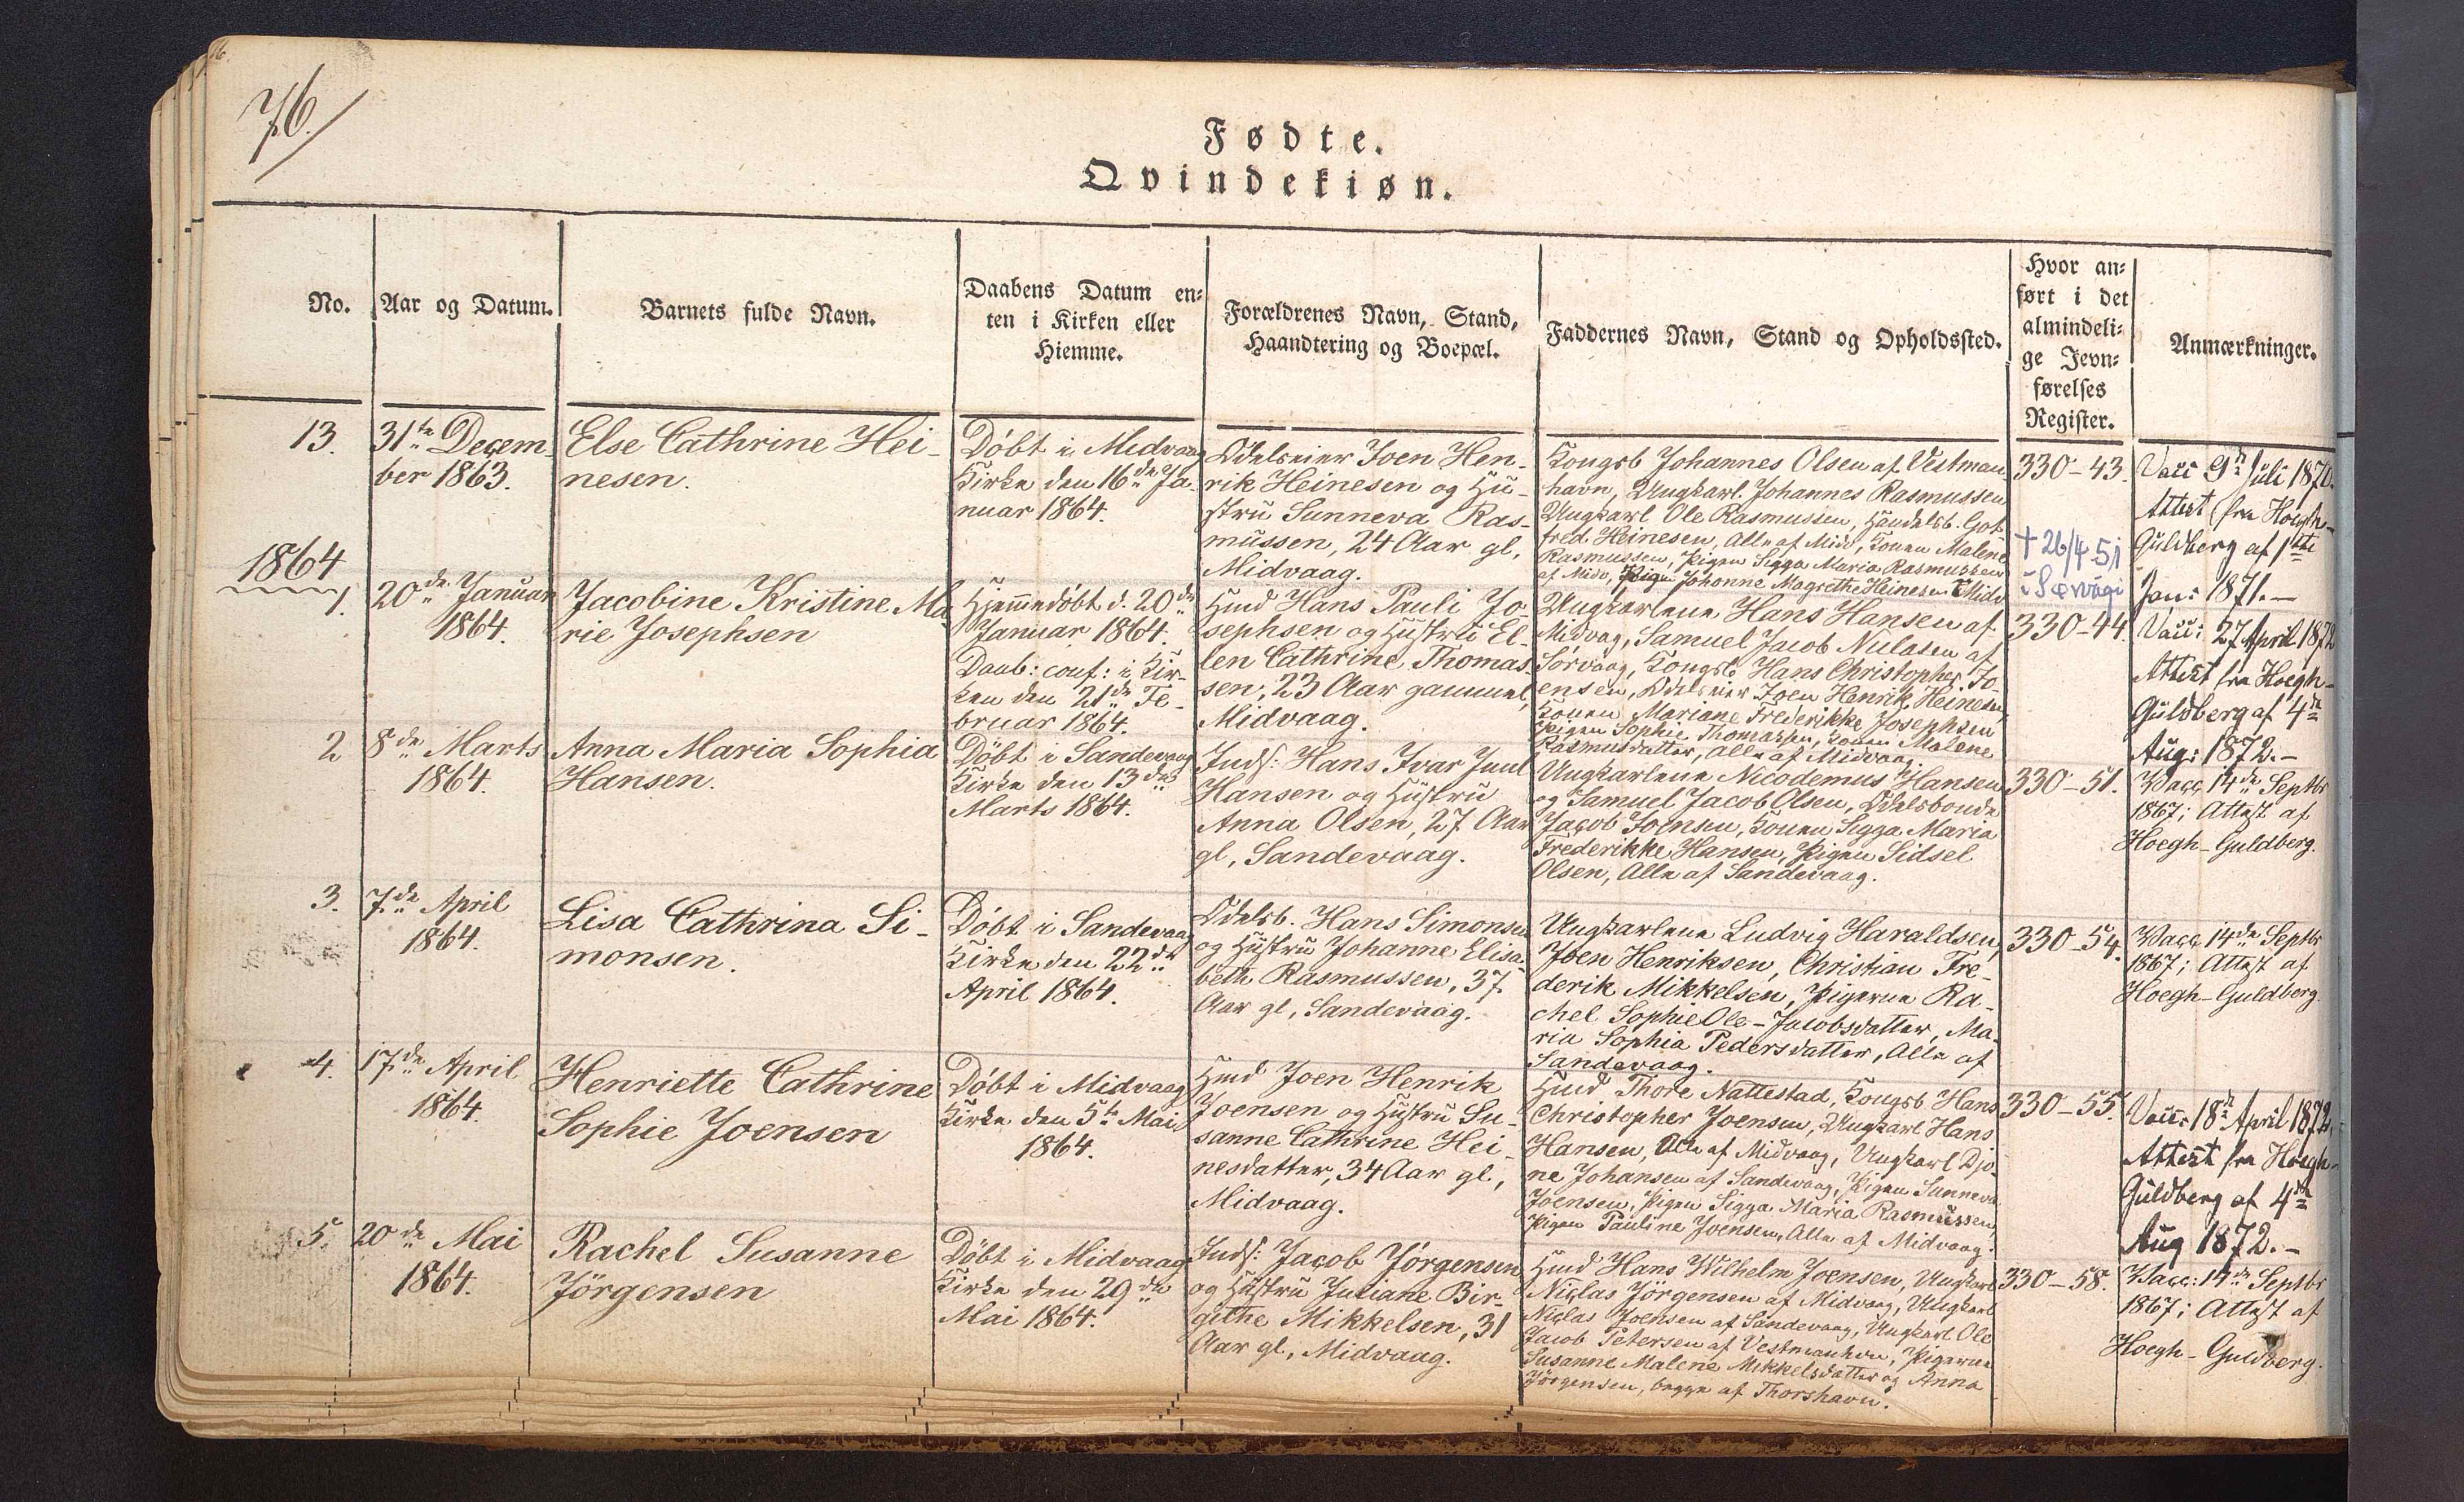 76.
Fødte.
Qvindekiøn.
No.
Aar og Datum.
Barnets fulde Navn.
Daabens Datum en=
ten i Kirken eller
Hiemme.
Forældrenes Navn, Stand,
Haandtering og Boepæl.
Faddernes Navn, Stand og Opholdssted.
Hvor an=
ført i det
almindeli=
ge Jevn=
førelses
Register.
Anmærkninger.
13.
31te Decem-
ber 1863.
Else Cathrine Hei-
nesen.
Döbt i Midvaag
Kirke den 16de Ja-
nuar 1864.
Odelseier Joen Hen-
rik Heinesen og Hu-
stru Sunneva Ras-
mussen, 24 Aar gl,
Midvaag.
Kongsb Johannes Olsen af Vestman-
havn, Ungkarl Johannes Rasmussen
Ungkarl Ole Rasmussen, Handelsb. Got-
fred Heinesen, Alle af Midv, Konen Malene
Rasmussen, Pigen Sigga Maria Rasmussen
af Midv, Pigen Johanne Magrethe Heinesen Midv
330-43.
† 26/4 51
i Sørvági
Vacc 9de Juli 1870.
Attest fra Hoegh-
Guldberg af 1ste
Jan: 1871.-
1864
1.
20de Januar
1864.
Jacobine Kristine Ma-
rie Josephsen
Hjemmedöbt d. 20de
Januar 1864.
Daab: conf: i Kir-
ken den 21de Fe-
bruar 1864.
Hmd Hans Pauli Jo-
sephsen og Hustru El-
len Cathrine Thomas-
sen, 23 Aar gammel,
Midvaag.
Ungkarlene Hans Hansen af
Midvag, Samuel Jacob Nielasen af
Sørvaag, Kongsb Hans Christopher Jo-
ensen, Odelseier Joen Henrik Heinesen,
Konen Mariane Frederikke Josephsen
Pigen Sophie Thomassen, Konen Malene
Rasmusdatter, alle af Midvaag.
330-44.
Vacc: 27 April 1872
Attest fra Hoegh-
Guldberg af 4de
Aug: 1872.-
2
8de Marts
1864.
Anna Maria Sophia
Hansen.
Döbt i Sandevaag
Kirke den 13de
Marts 1864.
Inds: Hans Ivar Juul
Hansen og Hustru
Anna Olsen, 27 Aar
gl, Sandevaag.
Ungkarlene Nicodemus Hansen
og Samuel Jacob Olsen, Odelsbonde
Jacob Joensen, Konen Sigga Maria
Frederikke Hansen, Pigen Sidsel
Olsen, Alle af Sandevaag.
330-51.
Vacc 14de Septbr
1867; Attest af
Hoegh-Guldberg.
3.
7de April
1864.
Lisa Cathrina Si-
monsen.
Döbt i Sandevaag
Kirke den 22de
April 1864.
Odelsb. Hans Simonsen
og Hustru Johanne Elisa-
beth Rasmussen, 37
Aar gl, Sandevaag.
Ungkarlene Ludvig Haraldsen,
Joen Henriksen, Christian Fre-
derik Mikkelsen, Pigerne Ra-
chel Sophie Ole-Jacobsdatter, Ma-
ria Sophia Pedersdatter, Alle af
Sandevaag.
330-54.
Vacc 14de Septbr
1867; Attest af
Hoegh-Guldberg.
4.
17de April
1864.
Henriette Cathrine
Sophie Joensen
Döbt i Midvaag
Kirke den 5te Mai
1864.
Hmd Joen Henrik
Joensen og Hustru Su-
sanne Cathrine Hei-
nesdatter, 34 Aar gl,
Midvaag.
Hmd Thore Nattestad, Kongsb Hans
Christopher Joensen, Ungkarl Hans
Hansen, Alle af Midvaag, Ungkarl Djo-
ne Johansen af Sandevaag, Pigen Sunneva
Joensen, Pigen Sigga Maria Rasmussen,
Pigen Pauline Joensen, Alle af Midvaag.
330-55.
Vacc: 18de April 1872.
Attest fra Hoegh-
Guldberg af 4de
Aug 1872.-
5.
20de Mai
1864.
Rachel Susanne
Jörgensen
Döbt i Midvaag
Kirke den 29de
Mai 1864.
Inds: Jacob Jörgensen
og Hustru Juliane Bir-
githe Mikkelsen, 31
Aar gl., Midvaag.
Hmd Hans Wilhelm Joensen, Ungkarl
Niclas Jörgensen af Midvaag, Ungkarl
Niclas Joensen af Sandevaag, Ungkarl Ole
Jacob Petersen af Vestmanhvn, Pigerne
Susanne Malene Mikkelsdatter og Anna
Jörgensen, begge af Thorshavn.
330-58.
Vacc: 14de Septbr
1867; Attest af
Hoegh-Guldberg.